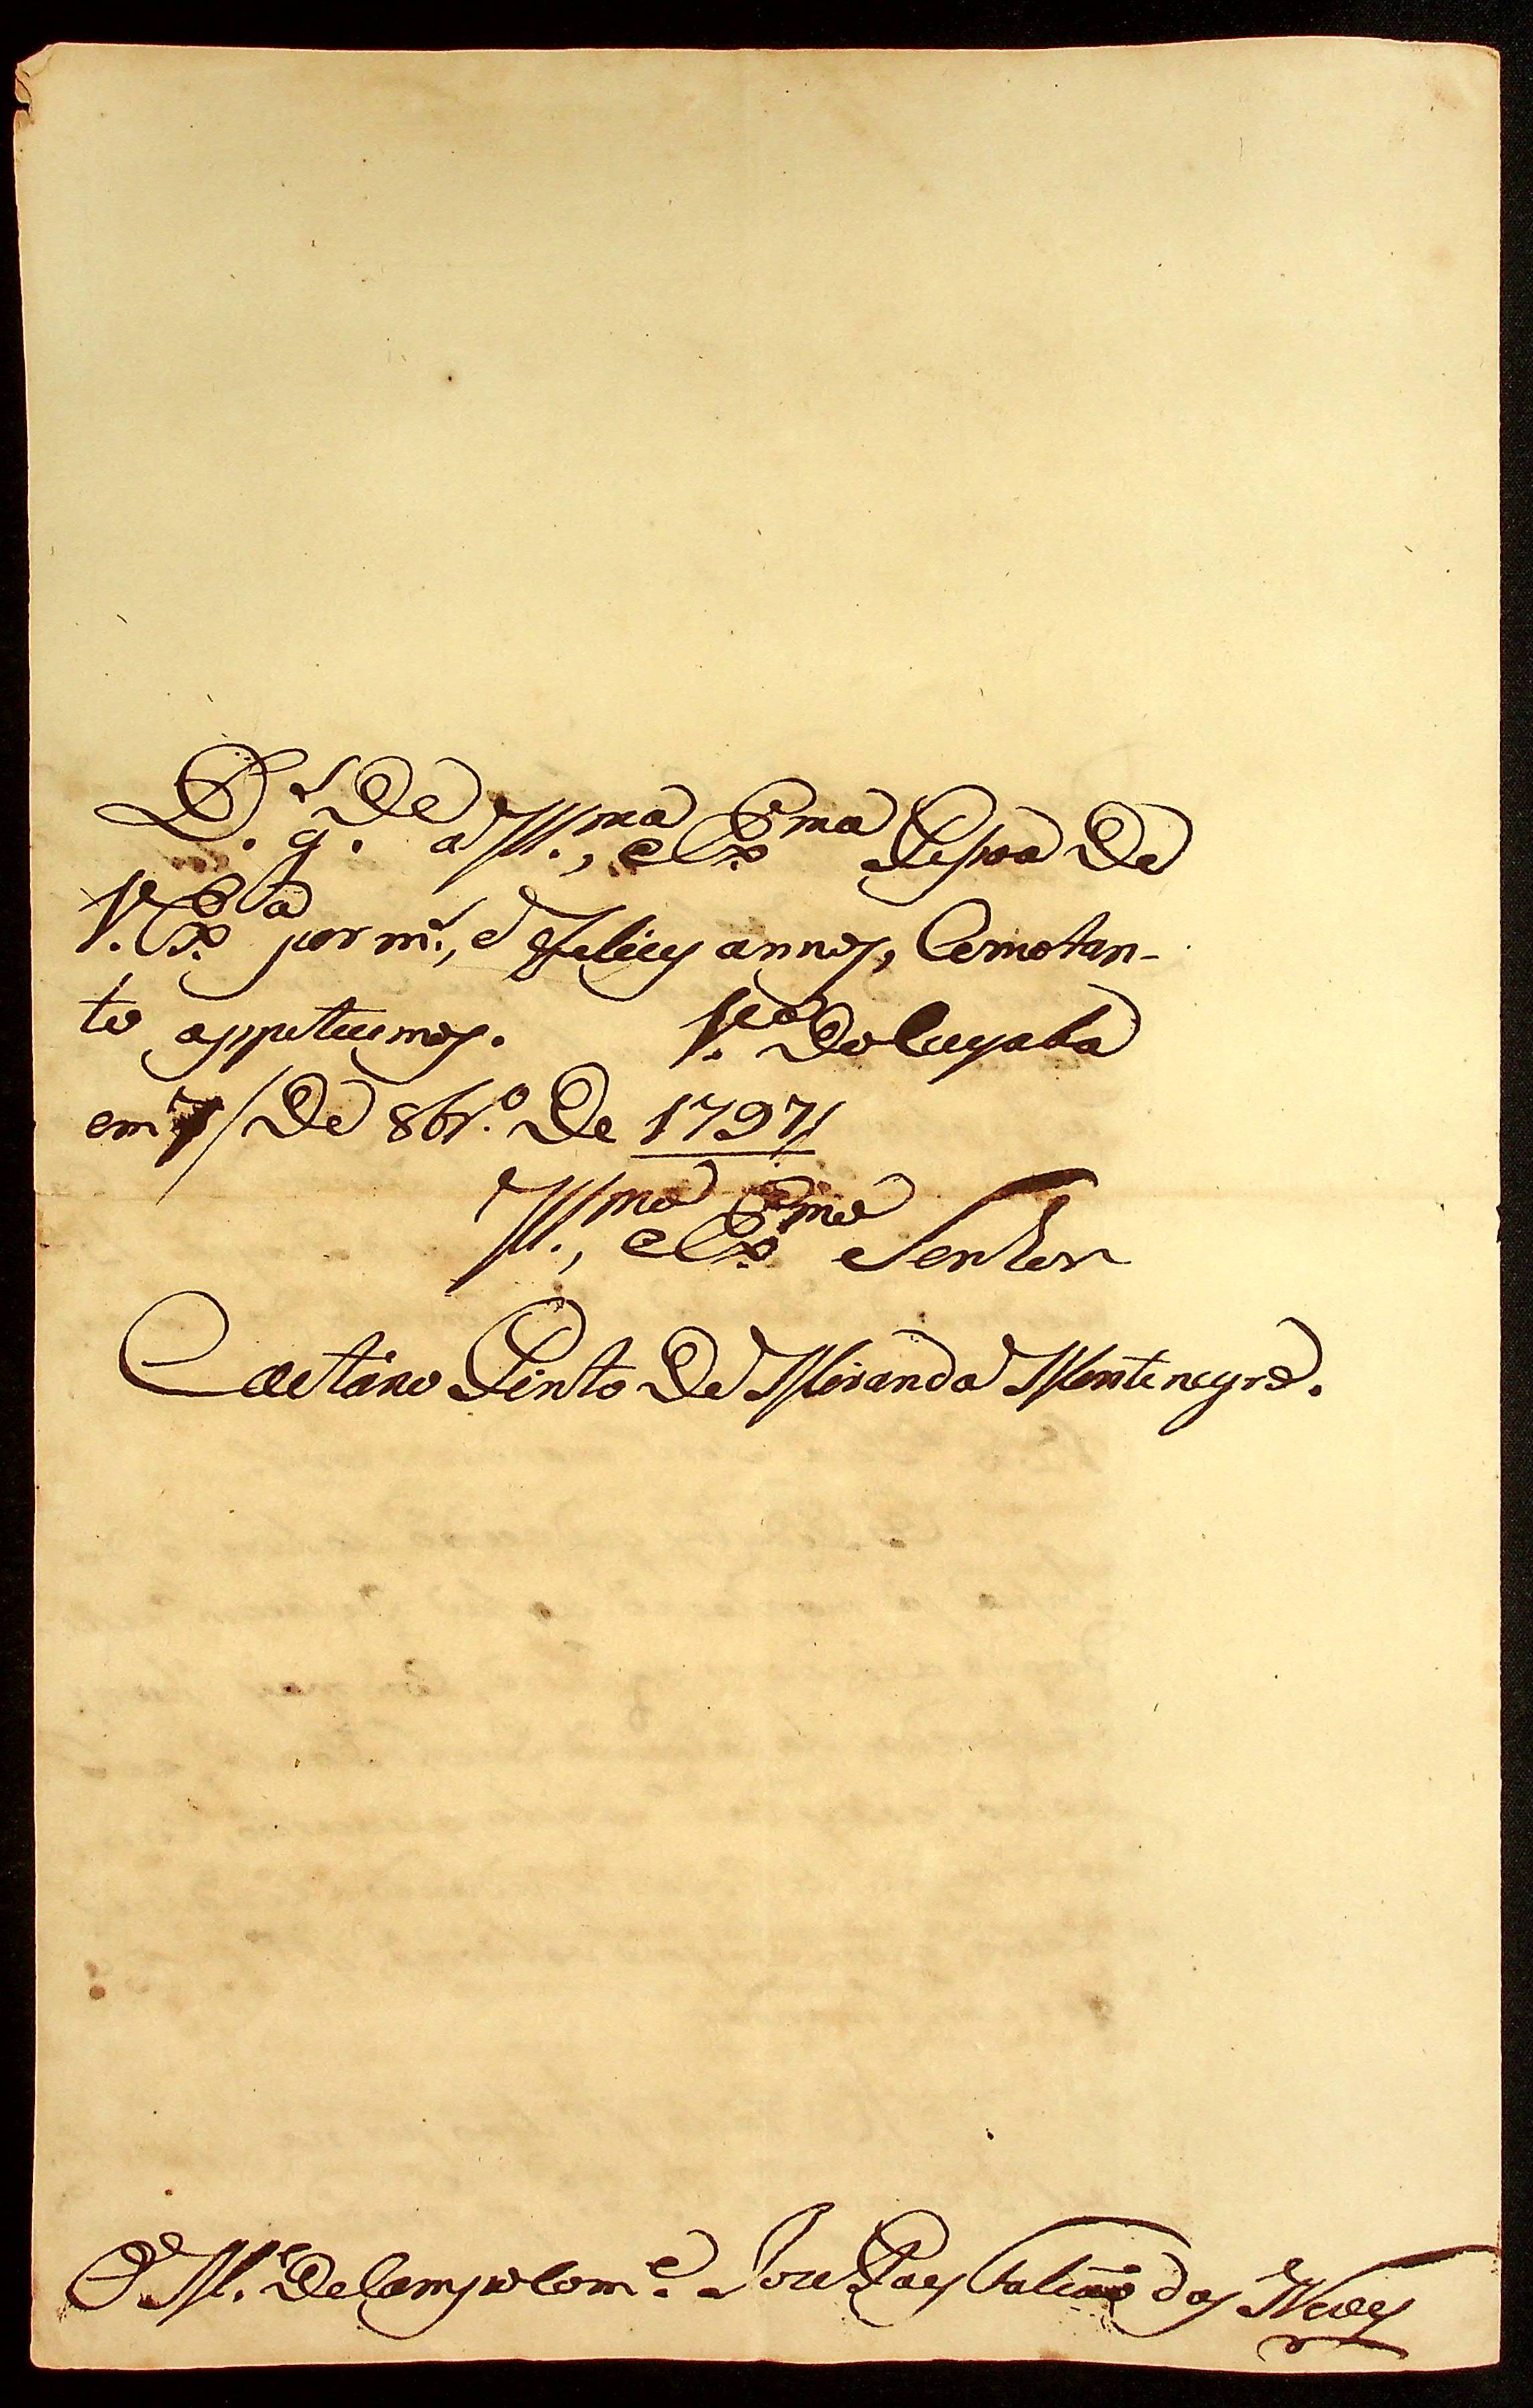 D.s g.de a Ill.ma, e Ex.ma Pesoa de
V. Ex.a por m.s, e Felices annos, Como tan-
to appetecemos. V.a do Cuyaba
em 7/ de 8br.o de 1797//
Ill.mo, e Ex.mo Senhor
Caetano Pinto de Miranda Montenegro.
O M.e de Campo Com.e Joze Paes Falcaõ das Neves